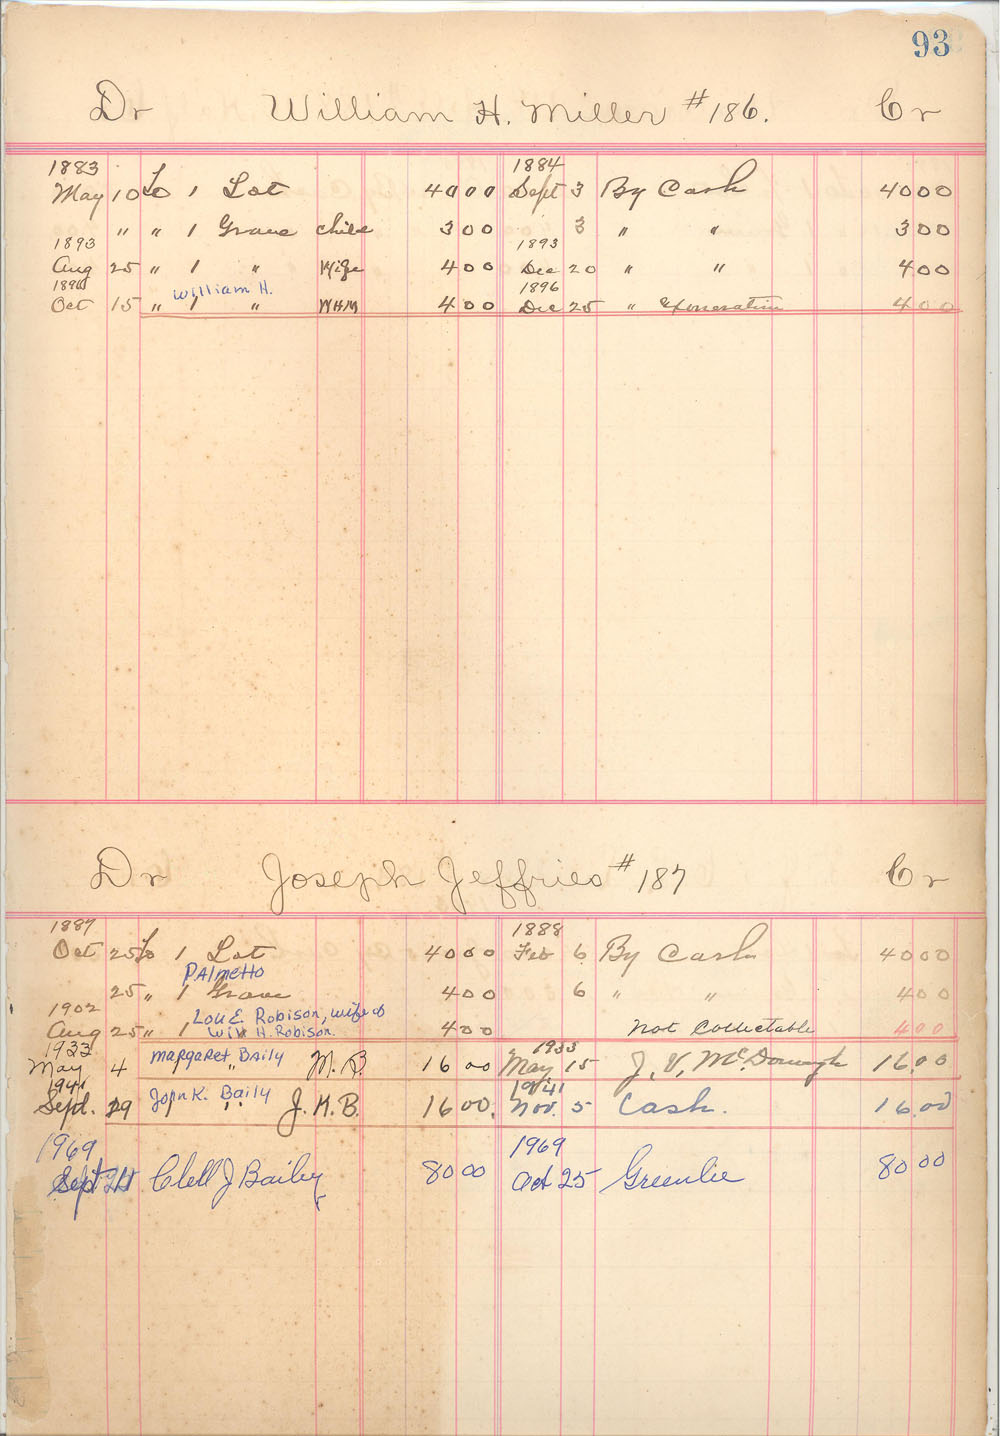 93
Dr William H. Miller #186. Cr
1883 1884
May 10 To 1 Lot 4000 Sept 3 By Cash 4000
" " 1 Grave child 300 3 " " 300
1893 1893
Aug 25 " 1 " Wife 400 Dec 20 " " 400
William H. 1896
Oct 15 " 1 " WHM 400 Dec 25 " Exoneration 400
Dr Joseph Jeffries #187 Cr
1887 1888
Oct 25 To 1 Lot 4000 Feb 6 By Cash 4000
PAlmetto
25 " 1 Grave 400 6 " " 400
1902 Lou E. Robison, wife of
Aug 25 " 1 Will H. Robison. 400 Not Collectable 400
1933 1933
May 4 Margaret Baily " M. B. 16 00 May 15 J. V. McDonough 16.00
1941 1941
Sept. 29 John K. Baily " J. K. B. 16 00. Nov. 5 Cash. 16.00
1969 1969
Sept Clell J Bailey 80 00 Oct 25 Greenlee 80 00